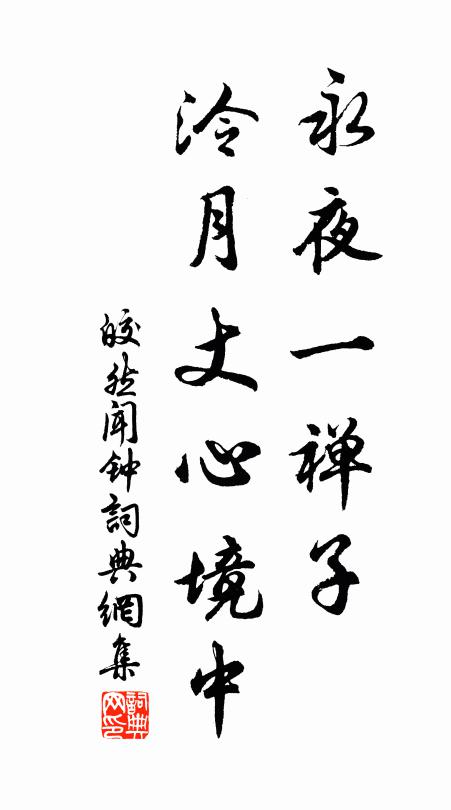 永夜一禅子
泠月丈心境中
皎然闻钟詞典網集
詞典
网印